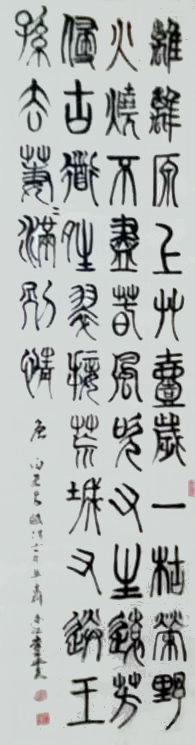 離離原上艸壹歲一枯榮野
火燒不盡萅風吹又生遠芳
侵古道晴翠接荒城又送王
孫去萋〻滿別情
唐 白居易